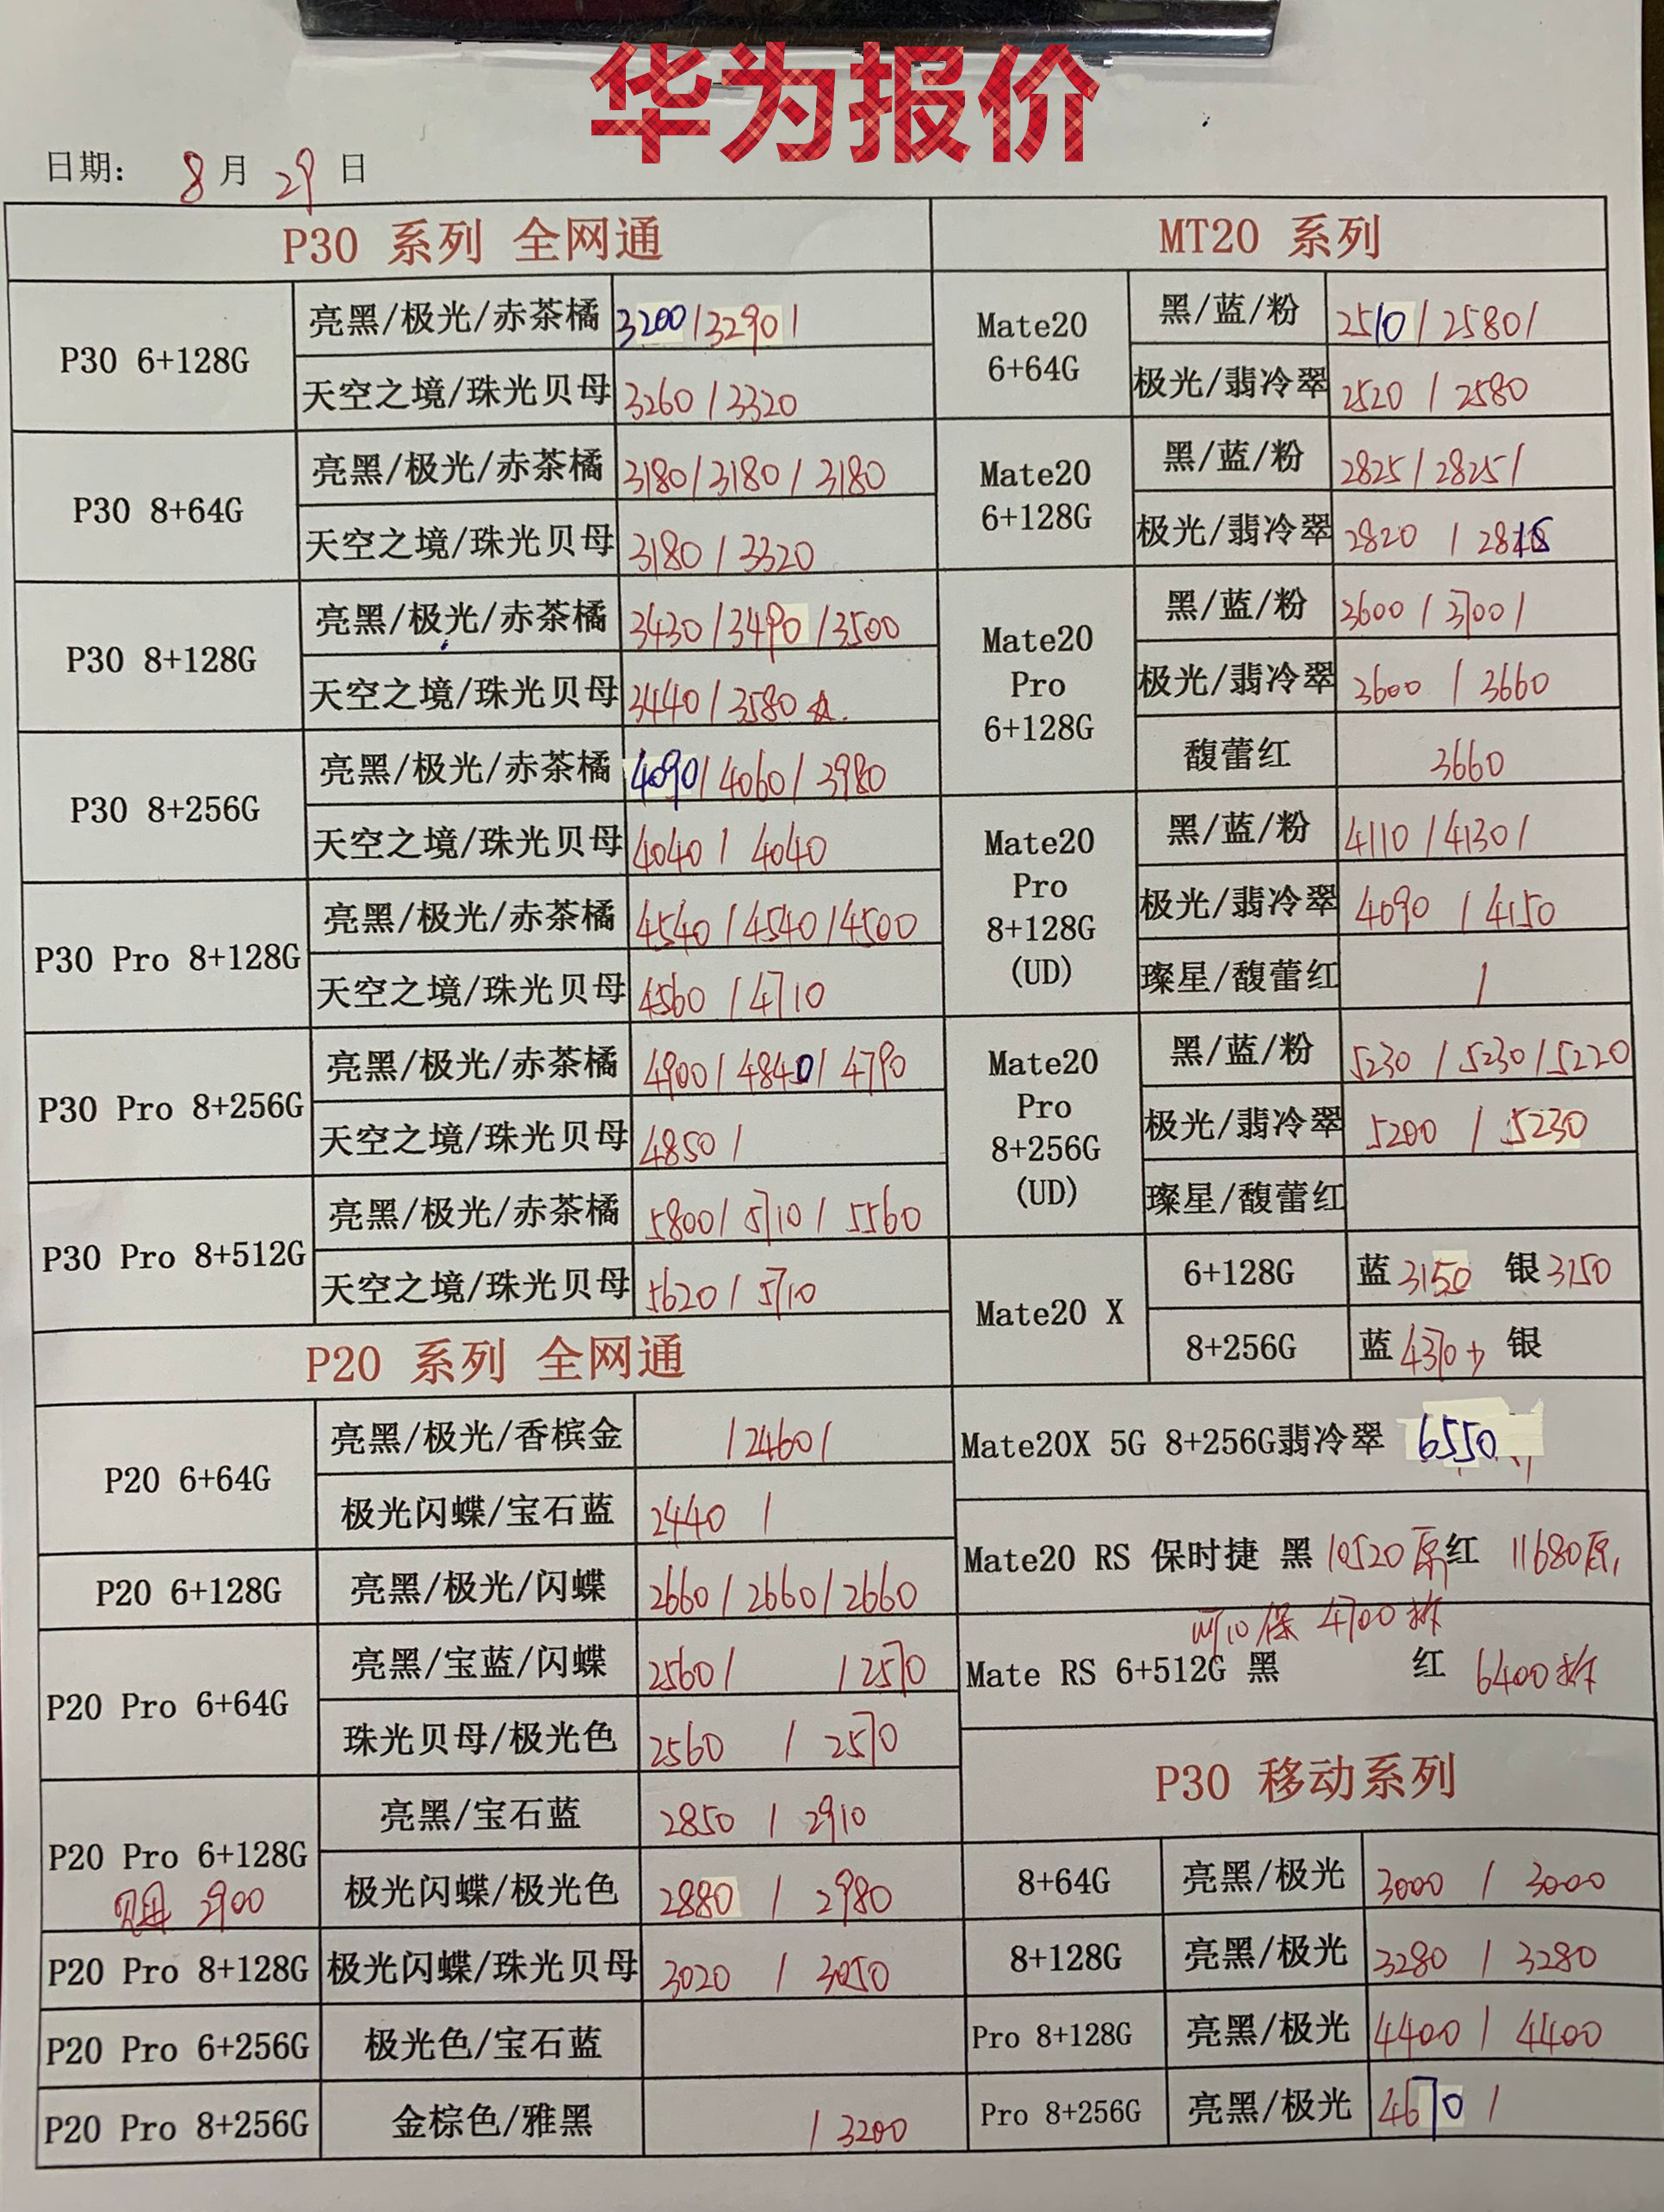 华为报价
日期： 8 月 29 日
P30 系列 全网通
P30 6+128G 亮黑/极光/赤茶橘 3200/3290/
天空之境/珠光贝母 3260/3320
P30 8+64G 亮黑/极光/赤茶橘 3180/3180/3180
天空之境/珠光贝母 3180/3320
P30 8+128G 亮黑/极光/赤茶橘 3430/3490/3500
天空之境/珠光贝母 3440/3580
P30 8+256G 亮黑/极光/赤茶橘 4090/4060/3980
天空之境/珠光贝母 4040/4040
P30 Pro 8+128G 亮黑/极光/赤茶橘 4540/4540/4500
天空之境/珠光贝母 4560/4710
P30 Pro 8+256G 亮黑/极光/赤茶橘 4900/4840/4790
天空之境/珠光贝母 4850/
P30 Pro 8+512G 亮黑/极光/赤茶橘 5800/5710/5560
天空之境/珠光贝母 5620/5710
P20 系列 全网通
P20 6+64G 亮黑/极光/香槟金 /2460/
极光闪蝶/宝石蓝 2440 /
P20 6+128G 亮黑/极光/闪蝶 2660/2660/2660
P20 Pro 6+64G 亮黑/宝蓝/闪蝶 2560/ /2570
珠光贝母/极光色 2560 / 2570
P20 Pro 6+128G 亮黑/宝石蓝 2850 / 2910
贝母 2900 极光闪蝶/极光色 2880 / 2980
P20 Pro 8+128G 极光闪蝶/珠光贝母 3020 / 3050
P20 Pro 6+256G 极光色/宝石蓝
P20 Pro 8+256G 金棕色/雅黑 / 3200
MT20 系列
Mate20 黑/蓝/粉 2510/2580/
6+64G 极光/翡冷翠 2520 / 2580
Mate20 黑/蓝/粉 2825/2825/
6+128G 极光/翡冷翠 2820 /
Mate20 黑/蓝/粉 3600/3700/
Pro 极光/翡冷翠 3600 / 3660
6+128G 馥蕾红 3660
Mate20 黑/蓝/粉 4110/4130/
Pro
8+128G 极光/翡冷翠 4090 / 4150
(UD) 璨星/馥蕾红 /
Mate20 黑/蓝/粉 5230/5230/5220
Pro
8+256G 极光/翡冷翠 5200 / 5230
(UD) 璨星/馥蕾红
Mate20 X 6+128G 蓝 3150 银 3150
8+256G 蓝 4370 银
Mate20X 5G 8+256G翡冷翠 6550
Mate20 RS 保时捷 黑 10520原 红 11680原
保 4700拆
Mate RS 6+512G 黑 红 6400拆
P30 移动系列
8+64G 亮黑/极光 3000 / 3000
8+128G 亮黑/极光 3280 / 3280
Pro 8+128G 亮黑/极光 4400 / 4400
Pro 8+256G 亮黑/极光 4670 /